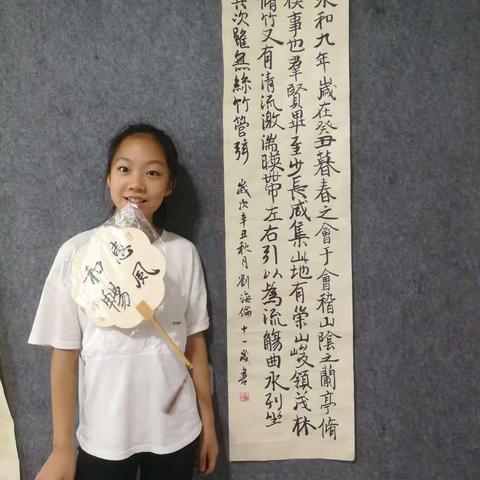 永和九年歲在癸丑暮春之會于會稽山陰之蘭亭脩
禊事也羣賢畢至少長咸集此地有崇山峻領茂林
脩竹又有清流激湍暎帶左右引以為流觴曲水列坐
其次雖無絲竹管弦 歲次辛丑秋月劉海倫十一歲書
惠風
和暢